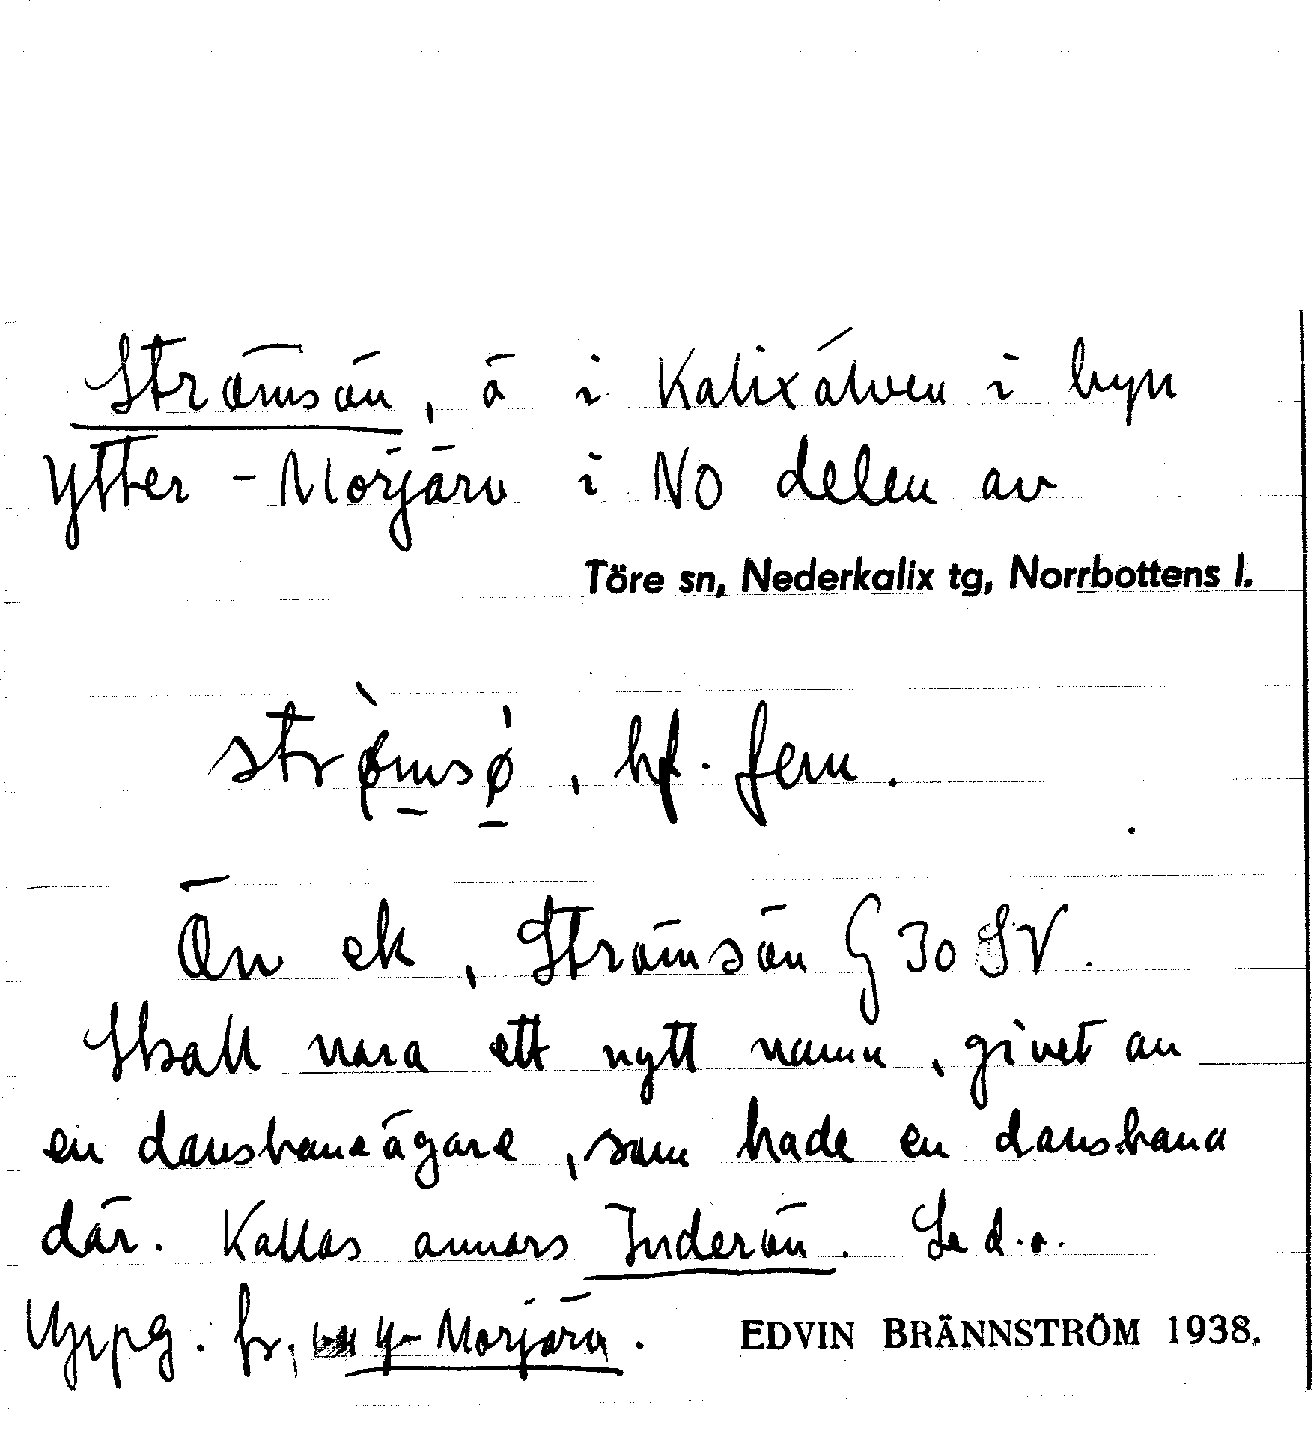 Strömsön, ö i Kalixälven i byn
Ytter-Morjärv i NO delen av
Töre sn, Nederkalix tg, Norrbottens l.
strø̀msø̍, bf. fem.
Ön ek, Strömsön G 30 SV.
Skall vara ett nytt namn, givet av
en dansbaneägare, som hade en dansbana
där. Kallas annars Inderön. Se d.o.
Uppg. fr. Y-Morjärv. EDVIN BRÄNNSTRÖM 1938.